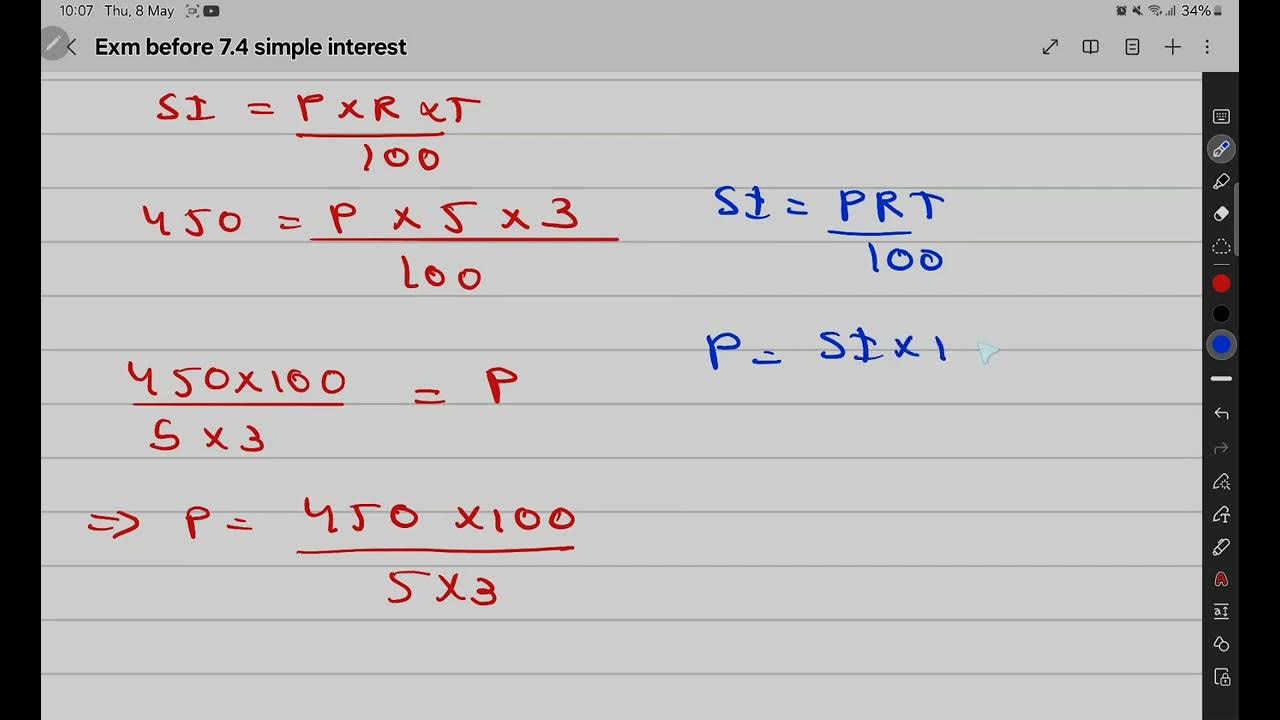 10:07 Thu, 8 May
34%
Exm before 7.4 simple interest
SI = P x R x T
100
450 = P x 5 x 3
100
450x100 = P
5 x 3
=> P = 450 x100
5x3
SI = PRT
100
P = SI x 1